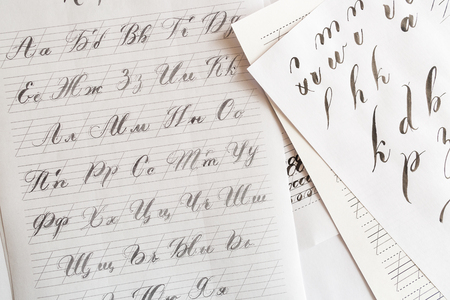 Аа Бб Вв Гг Дд
Ее Жж Зз Ии Кк
Лл Мм Нн Оо
Пп Рр Сс Тт Уу
Фф Хх Цц Чч Шш
Щщ Ъъ Ыы Ьь
Ээ Юю Яя
m m
r w r
l h k
d b
k p